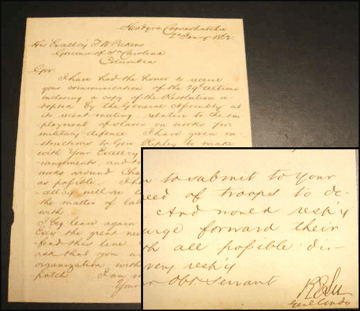 Headqrs Coosawhatchie
2d Jany 1862
His Excellcy F W Pickens
Governor of So Carolina
Columbia
Govr
I have had the honor to receive
your communication of the 29 Ultimo
inclosing a copy of the Resolution
adopted by the General Assembly at
its recent meeting relative to the em
ployment of slaves on works for
military defence I have given in
structions to Gen Ripley to make
with Your Excellcy
rangments and
works around Cha
as possible. I ha
all of
the matter of lab
with
I beg leave again
Excy the great nee
fend this line
ask that you w
organization with
patch I am
Your
n to submit to Your
eed of troops to de-
And none d resp'y
urge forward their
th all possible dis-
very resp'y
ur Obt Servant
R E Lee
Genl Comdg